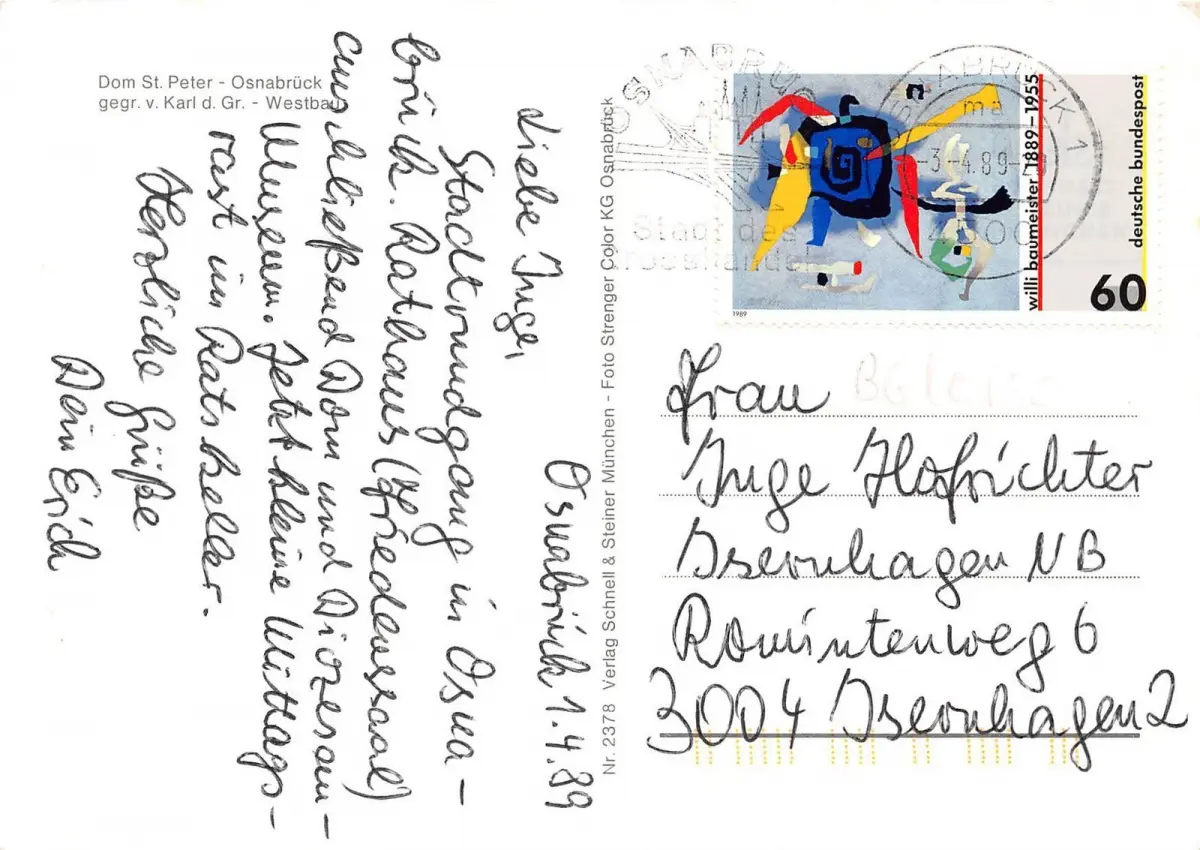 Dom St. Peter - Osnabrück
gegr. v. Karl d. Gr. - Westbau
Osnabrück 1.4.89
Liebe Inge,
Stadtrundgang in Osna-
brück. Rathaus (Friedenssaal)
anschließend Dom und Diözesan-
Museum. Jetzt kleine Mittags-
rast im Ratskeller.
Herzliche Grüße
Dein Erich
Nr. 2378 Verlag Schnell & Steiner München - Foto Strenger Color KG Osnabrück
OSNABRÜCK
Stadt des
Grosshandels
OSNABRÜCK 1
ma
3-4.89
4500
willi baumeister 1889-1955
deutsche bundespost
60
1989
Frau
Inge Hofrichter
Isernhagen NB
Romintenweg 6
3004 Isernhagen 2